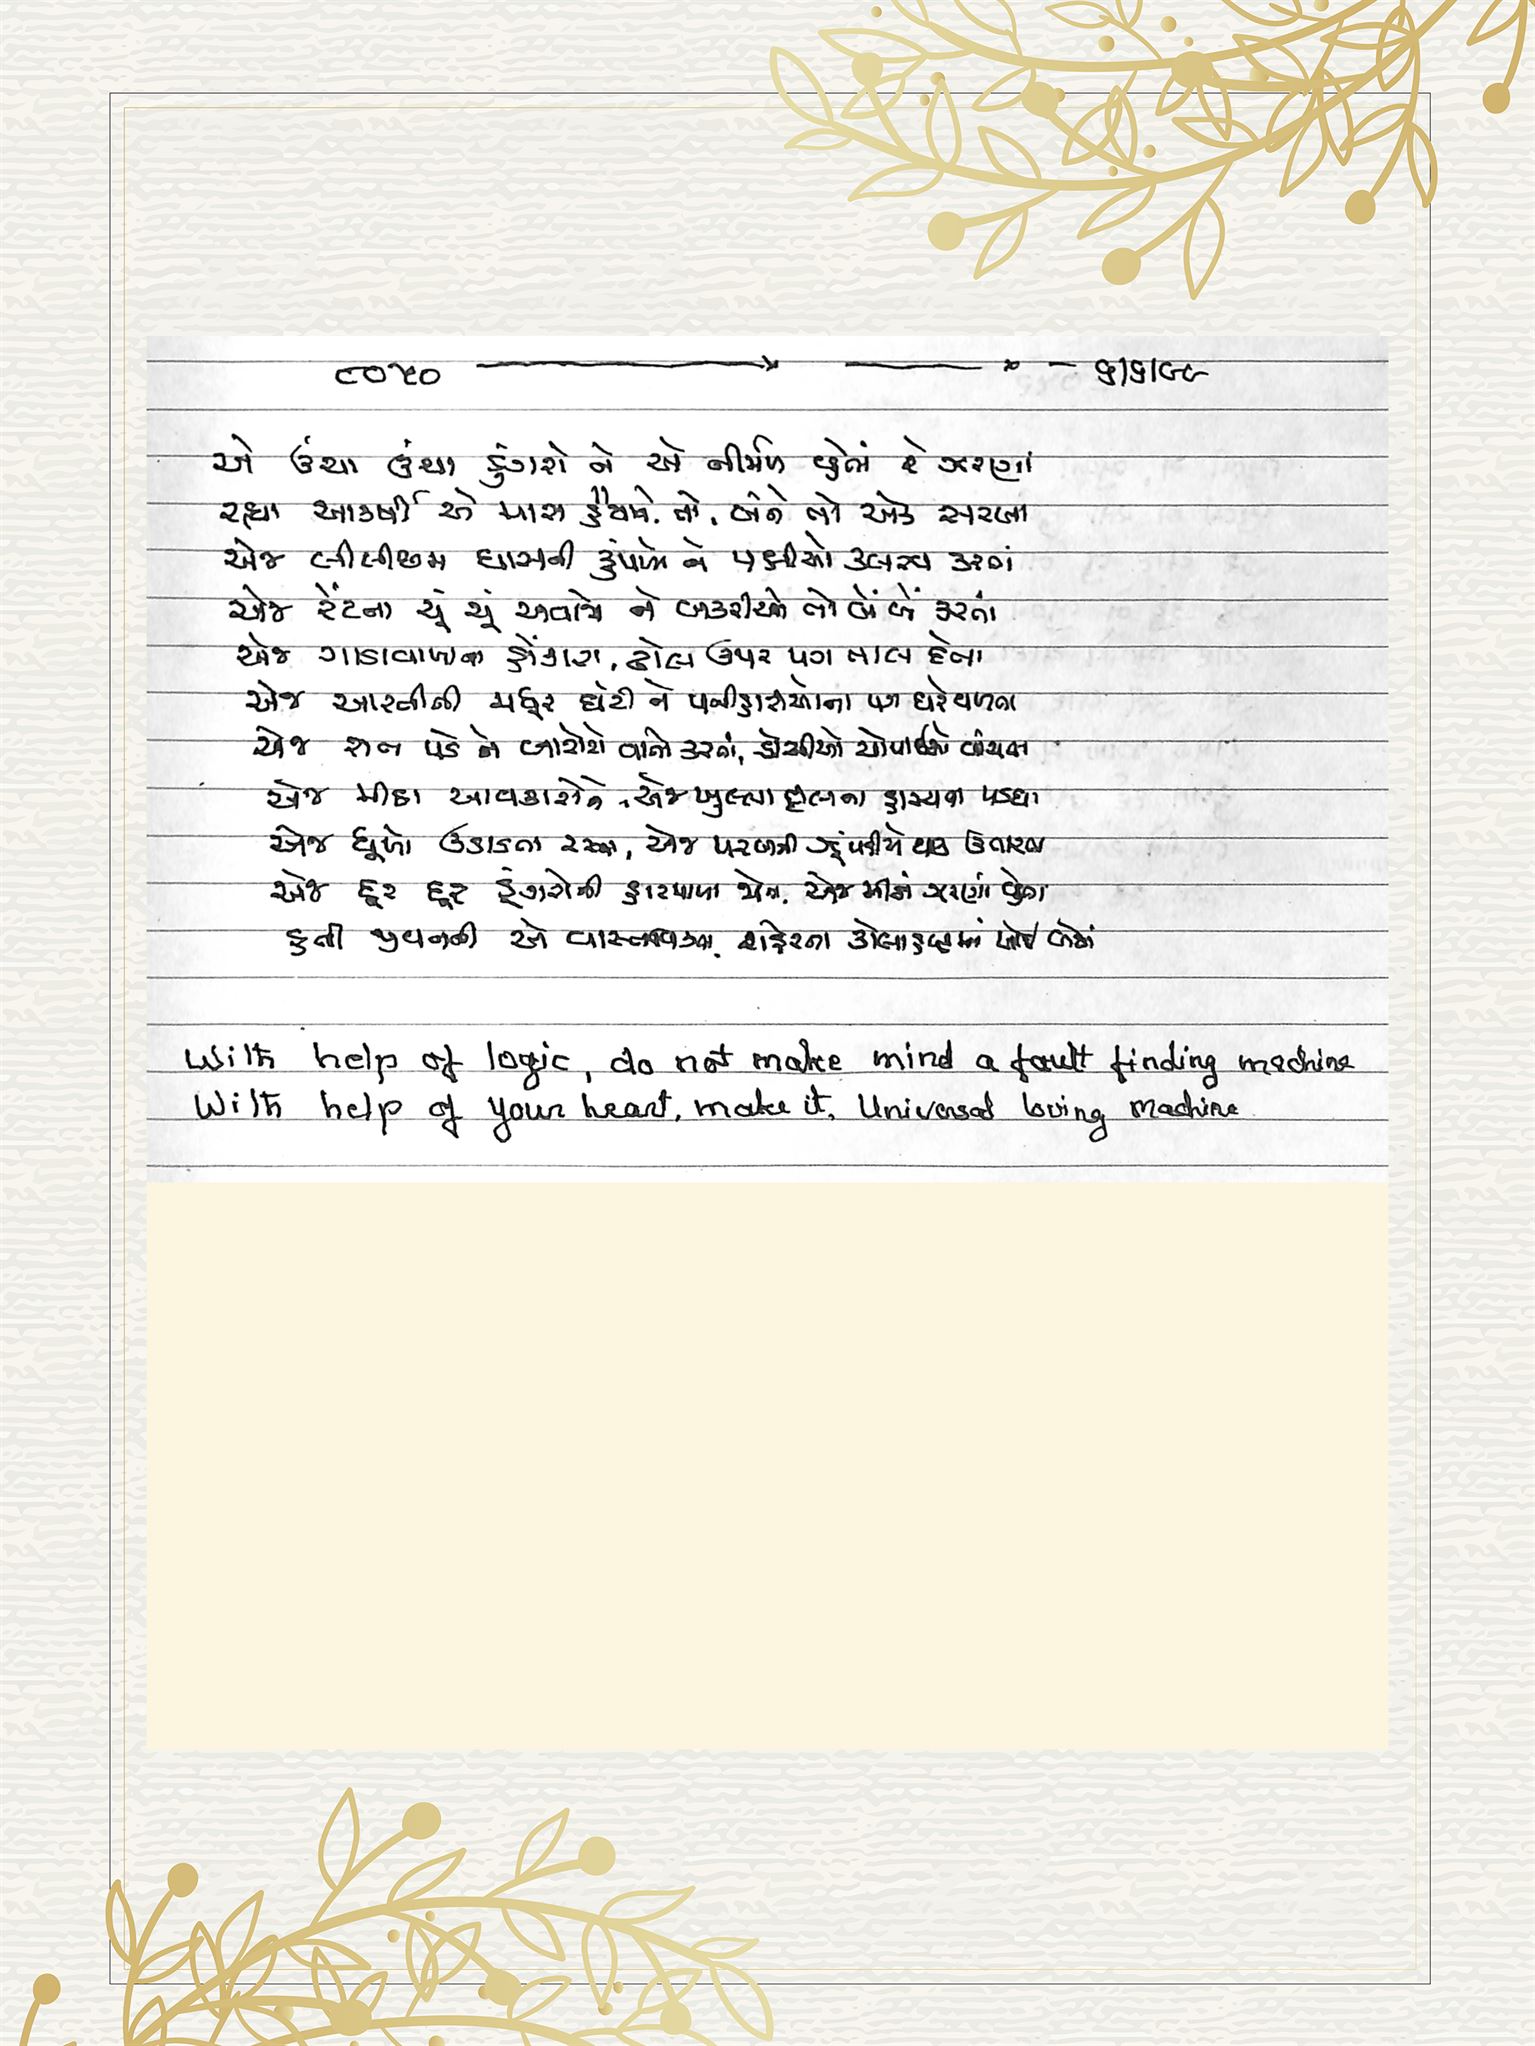 ૮૦૪૦ ૬/૬/૯૮
એ ઉંચા ઉંચા ડુંગરો ને એ નીર્મળ વ્હેતાં રે ઝરણાં
રહ્યા આકર્ષી એ પાસ હૈયાને. તો, બંને તો એક સરખા
એજ લીલીછમ ઘાસની કુંપળો ને પક્ષીઓ કલરવ કરતાં
એજ રેંટના ચૂં ચૂં અવાજો ને બકરીઓ તો બેં બેં કરતાં
એજ ગાડાવાળાના હોંકારા, ઢોલ ઉપર પગ તાલ દેતા
એજ આરતીની મધુર ઘંટી ને પનીહારીઓના પગ ઘરે વળતા
એજ રાત પડે ને બારોરો વાતો કરતાં, ડોસીઓ ચોપાઈઓ વાંચતા
એજ મીઠા આવકારોને, એજ ખુલ્લા દીલના હાસ્યના પડઘા
એજ ધૂળો ઉડાડતા રસ્તા, એજ પરબની ઝૂંપડીયે થાક ઉતારતા
એજ દૂર દૂર ડુંગરોની હારમાળા જોતા. એજ મીઠાં ઝરણાં વ્હેતા
હતી જીવનની એ વાસ્તવિકતા. શહેરના કોલાહલમાં ખોઈ બેઠાં
With help of logic, do not make mind a fault finding machine
With help of your heart, make it, Universal loving machine